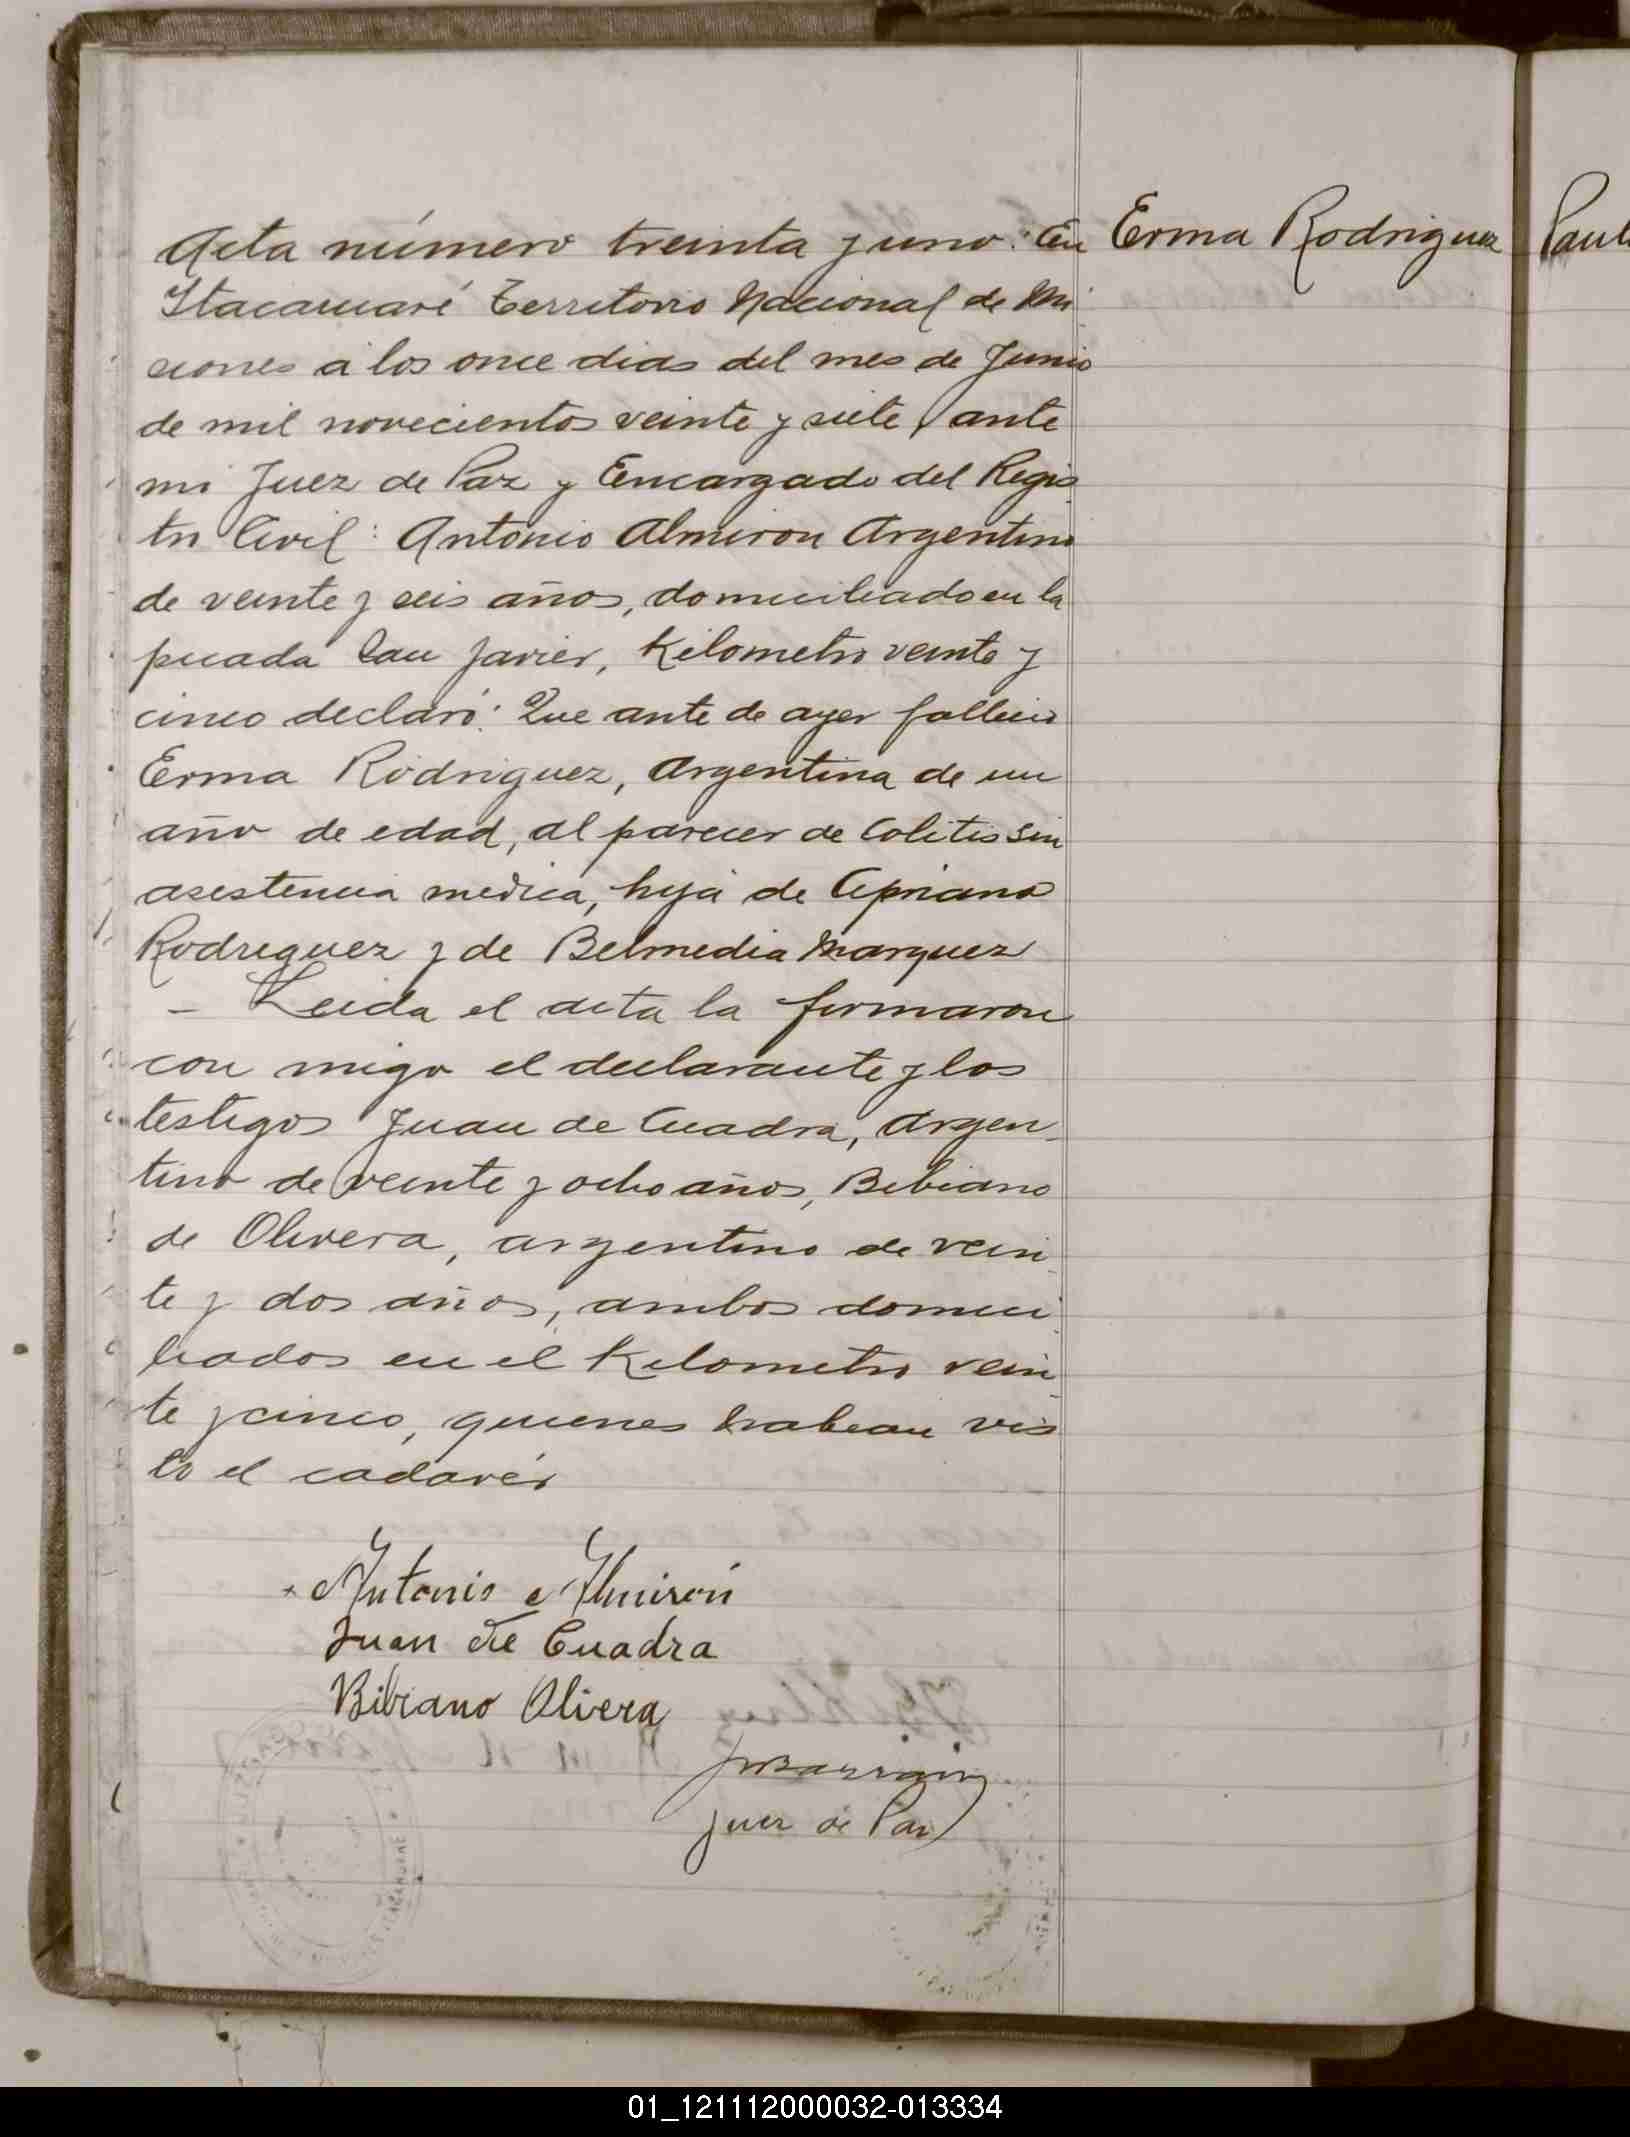 Acta número treinta y uno: En
Itacaruaré Territorio Nacional de Mi
siones a los once dias del mes de Junio
de mil novecientos veinte y siete, ante
mi Juez de Paz y Encargado del Regis
tro Civil: Antonio Almiron Argentino
de veinte y seis años, domiciliado en la
picada San Javier, Kilometro veinte y
cinco declaró: Que ante de ayer fallecio
Erma Rodriguez, Argentina de un
año de edad, al parecer de Colitis sin
asistencia medica, hija de Cipriano
Rodriguez y de Belmedia Marquez
- Leida el acta la firmaron
con migo el declarante y los
testigos Juan de Cuadra, Argen-
tino de veinte y ocho años, Bibiano
de Olivera, argentino de vein
te y dos años, ambos domici
liados en el Kilometro vein
te y cinco, quienes habian vis
to el cadavér
Antonio Almirón
Juan de Cuadra
Bibiano Olivera
Juez de Paz
Erma Rodriguez
01_121112000032-013334